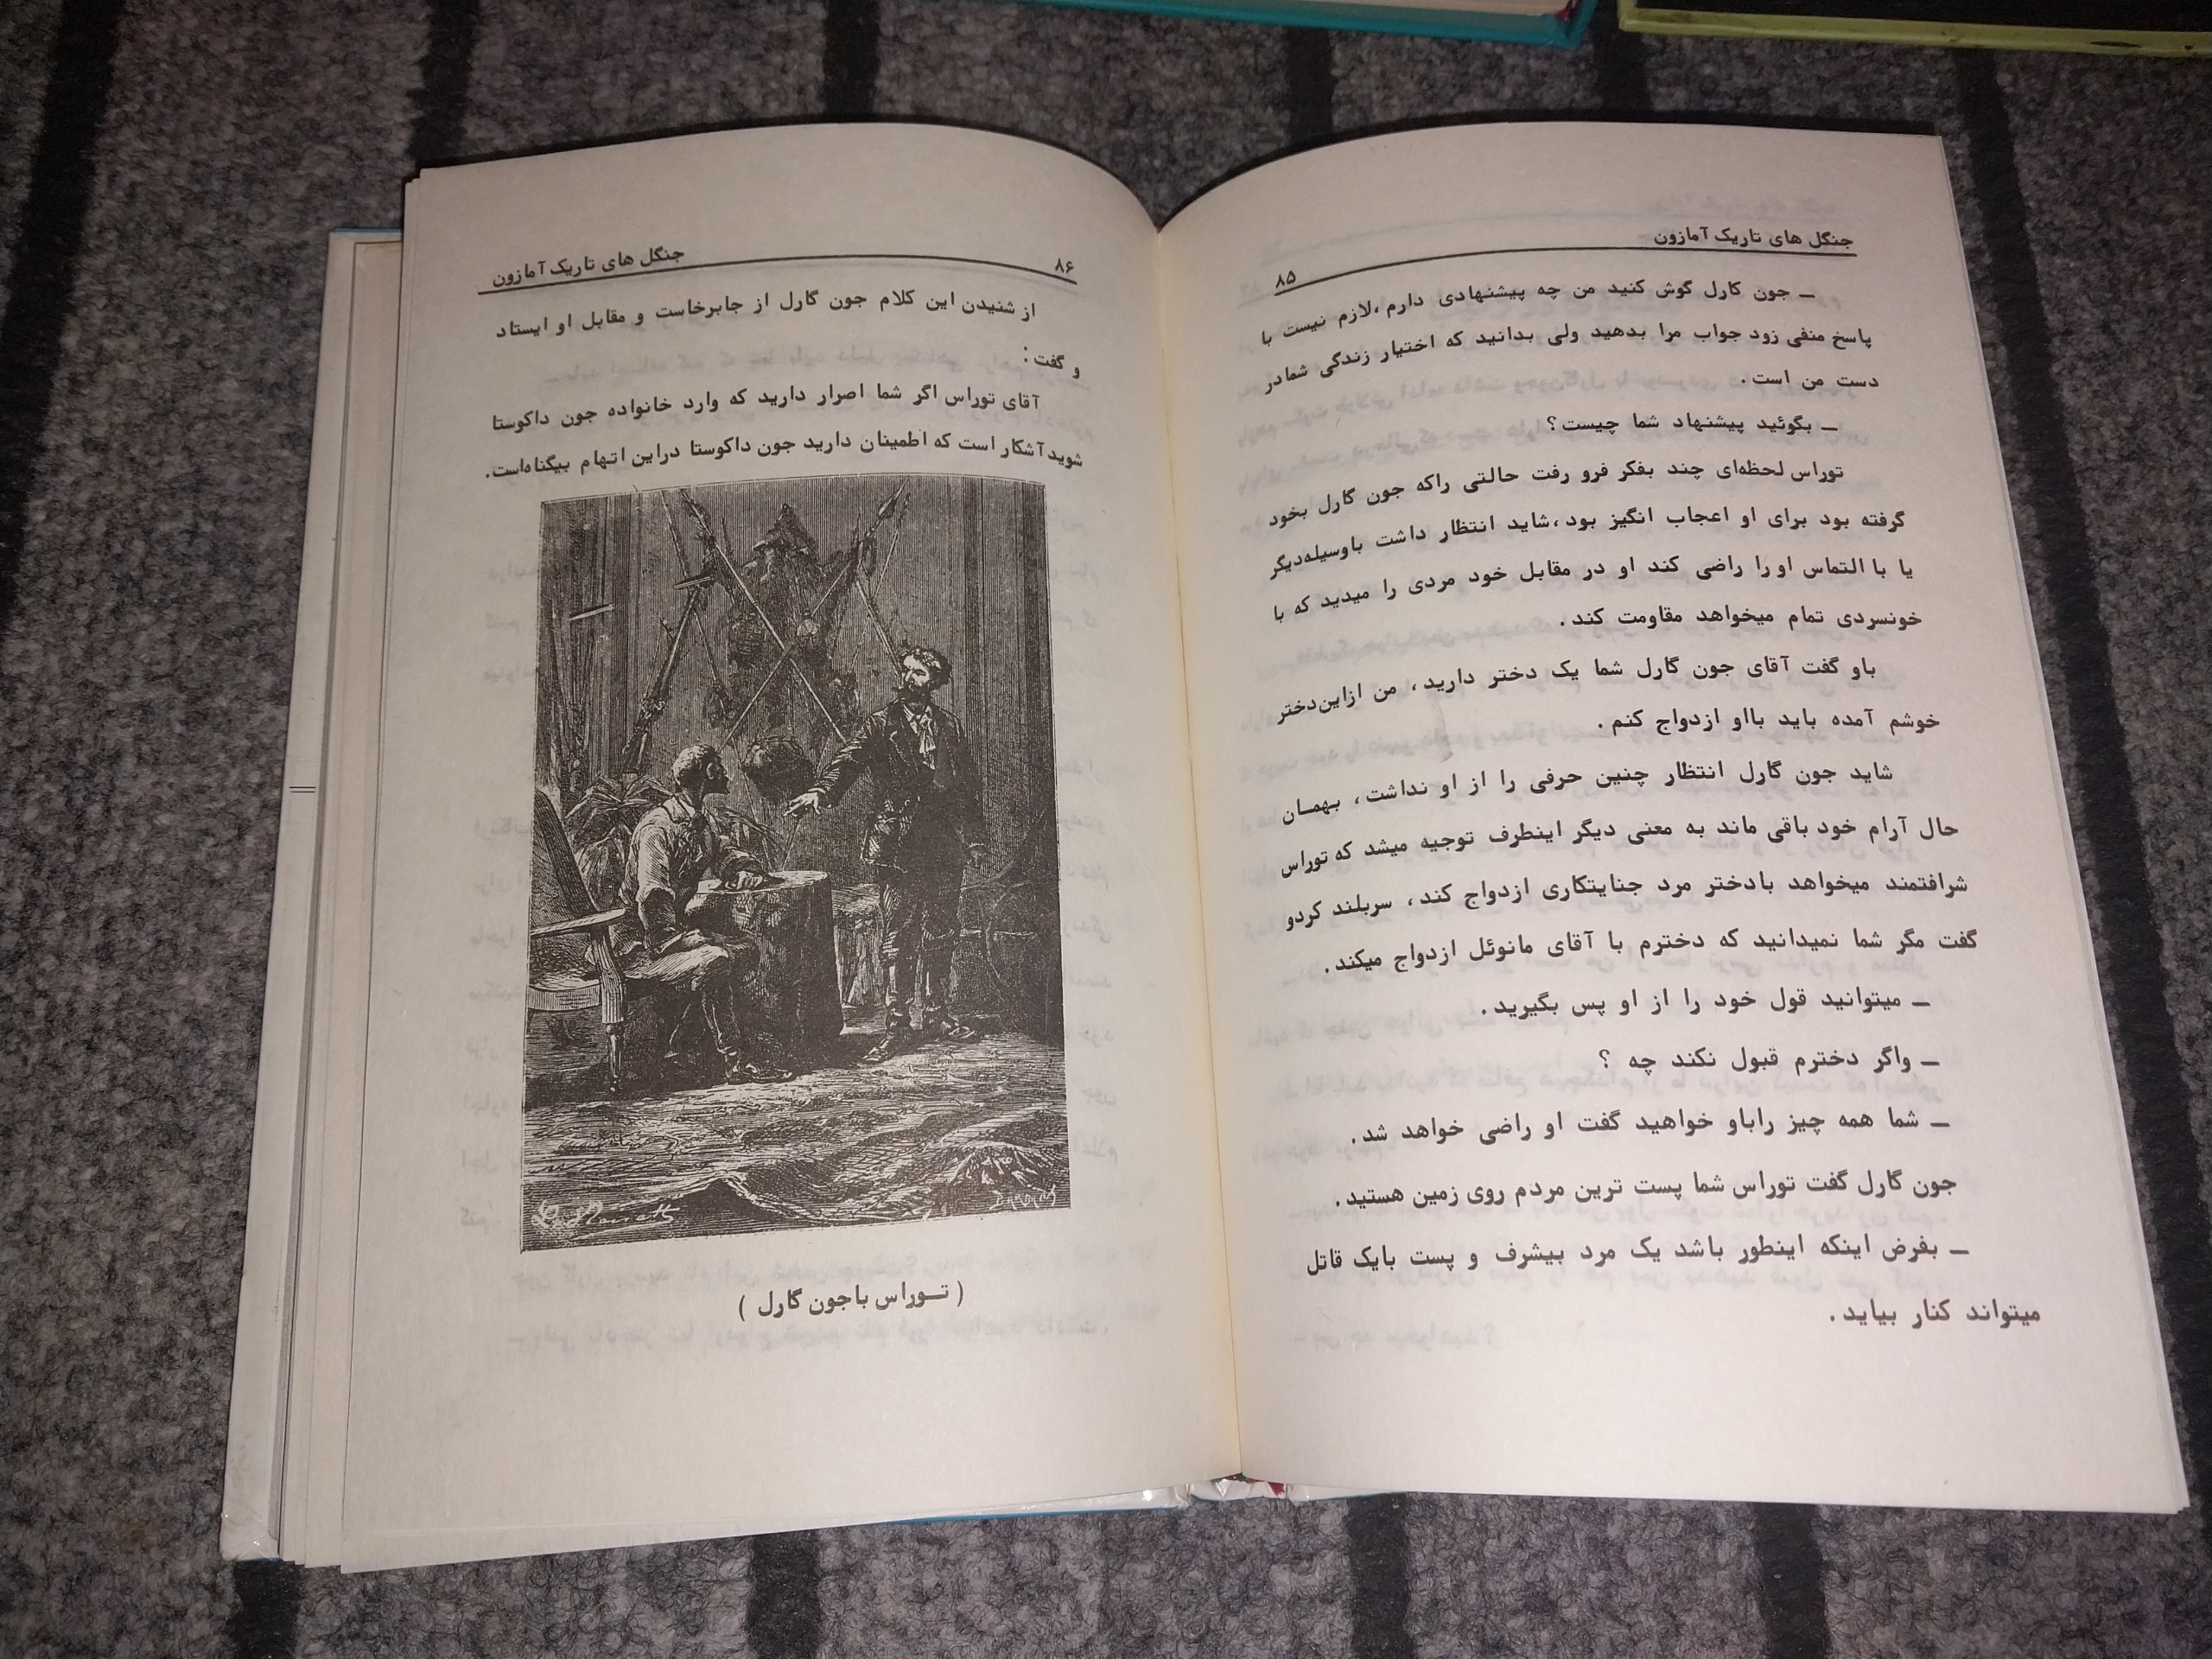 جنگل های تاریک آمازون
۸۵
ــ جون کارل گوش کنید من چه پیشنهادی دارم ،لازم نیست با
پاسخ منفی زود جواب مرا بدهید ولی بدانید که اختیار زندگی شمادر
دست من است .
ــ بگوئید پیشنهاد شما چیست؟
توراس لحظه‌ای چند بفکر فرو رفت حالتی راکه جون گارل بخود
گرفته بود برای او اعجاب انگیز بود ،شاید انتظار داشت باوسیله‌دیگر
یا با التماس اورا راضی کند او در مقابل خود مردی را میدید که با
خونسردی تمام میخواهد مقاومت کند .
باو گفت آقای جون گارل شما یک دختر دارید ، من ازاین‌دختر
خوشم آمده باید بااو ازدواج کنم .
شاید جون گارل انتظار چنین حرفی را از او نداشت ، بهمـان
حال آرام خود باقی ماند به معنی دیگر اینطرف توجیه میشد که توراس
شرافتمند میخواهد بادختر مرد جنایتکاری ازدواج کند ، سربلند کردو
گفت مگر شما نمیدانید که دخترم با آقای مانوئل ازدواج میکند .
ــ میتوانید قول خود را از او پس بگیرید .
ــ واگر دخترم قبول نکند چه ؟
ــ شما همه چیز راباو خواهید گفت او راضی خواهد شد .
جون گارل گفت توراس شما پست ترین مردم روی زمین هستید .
ــ بفرض اینکه اینطور باشد یک مرد بیشرف و پست بایک قاتل
میتواند کنار بیاید .
۸۶
جنگل های تاریک آمازون
از شنیدن این کلام جون گارل از جابرخاست و مقابل او ایستاد
و گفت :
آقای توراس اگر شما اصرار دارید که وارد خانواده جون داکوستا
شوید آشکار است که اطمینان دارید جون داکوستا دراین اتهام بیگناه‌است.
( تـوراس باجون گارل )